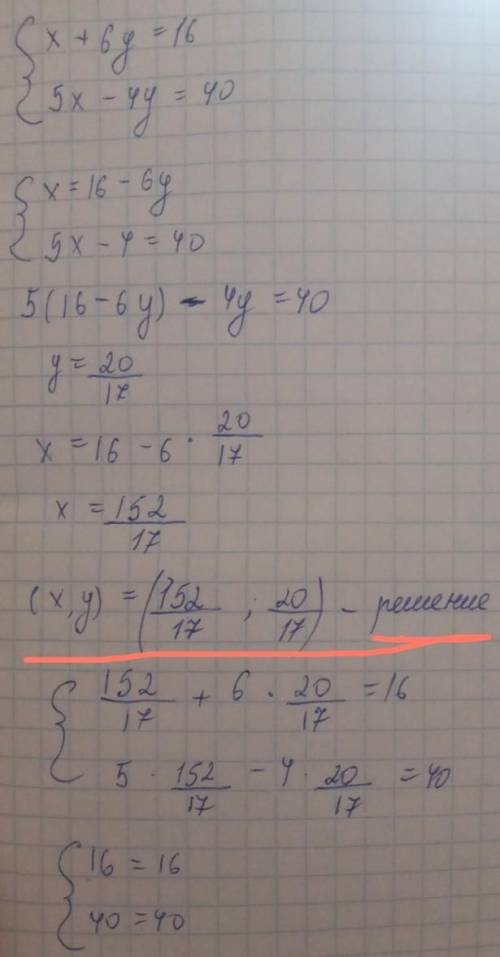 x + 6y = 16
5x - 4y = 40
x = 16 - 6y
5x - 4 = 40
5(16 - 6y) - 4y = 40
y = 20/17
x = 16 - 6 · 20/17
x = 152/17
(x, y) = (152/17 ; 20/17) - решение
152/17 + 6 · 20/17 = 16
5 · 152/17 - 4 · 20/17 = 40
16 = 16
40 = 40